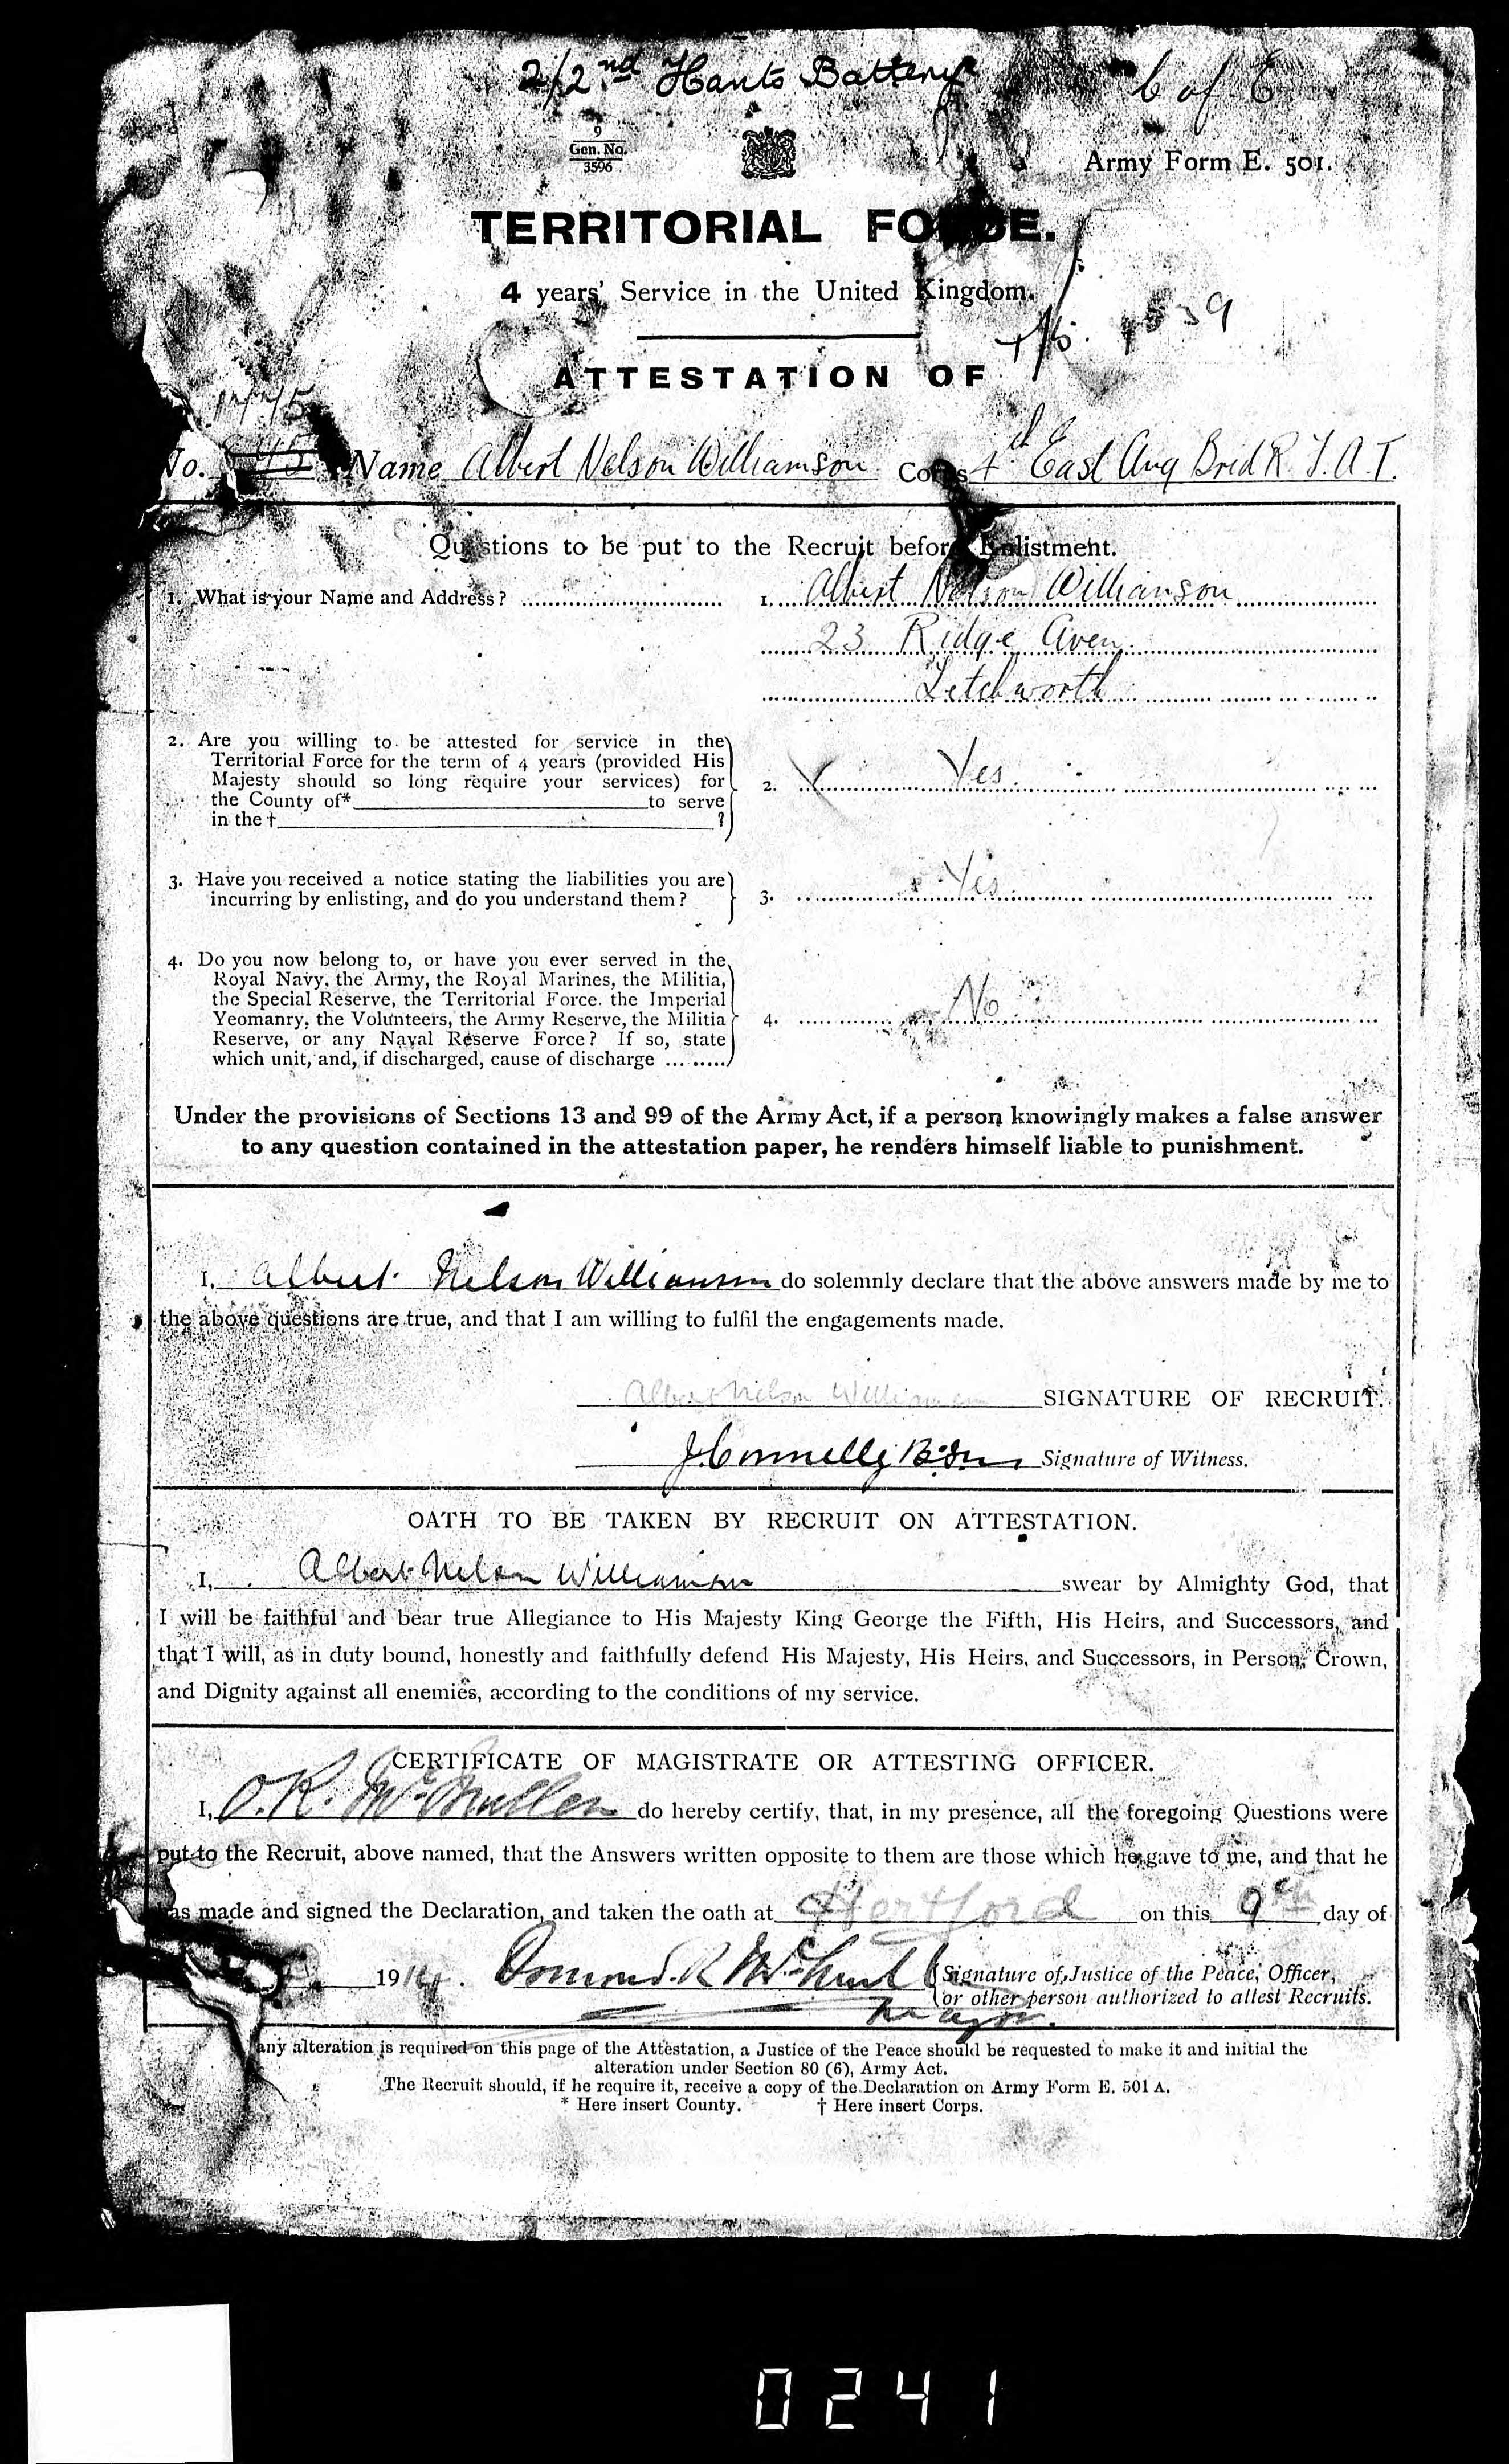 2/2nd Hants Battery
C of E
9
Gen. No.
3596
Army Form E. 501.
TERRITORIAL FORCE.
4 years' Service in the United Kingdom.
ATTESTATION OF
No. Name Albert Nelson Williamson Corps 4th East Ang Brid R.F.A.T.
Questions to be put to the Recruit before Enlistment.
1. What is your Name and Address? 1. Albert Nelson Williamson
23 Ridge Aven.
Letchworth
2. Are you willing to be attested for service in the
Territorial Force for the term of 4 years (provided His
Majesty should so long require your services) for
the County of* to serve
in the † ?
2. Yes.
3. Have you received a notice stating the liabilities you are
incurring by enlisting, and do you understand them?
3. Yes.
4. Do you now belong to, or have you ever served in the
Royal Navy, the Army, the Royal Marines, the Militia,
the Special Reserve, the Territorial Force, the Imperial
Yeomanry, the Volunteers, the Army Reserve, the Militia
Reserve, or any Naval Reserve Force? If so, state
which unit, and, if discharged, cause of discharge ... ......
4. No
Under the provisions of Sections 13 and 99 of the Army Act, if a person knowingly makes a false answer
to any question contained in the attestation paper, he renders himself liable to punishment.
I, Albert Nelson Williamson do solemnly declare that the above answers made by me to
the above questions are true, and that I am willing to fulfil the engagements made.
Albert Nelson Williamson SIGNATURE OF RECRUIT.
J. Connelly Signature of Witness.
OATH TO BE TAKEN BY RECRUIT ON ATTESTATION.
I, Albert Nelson Williamson swear by Almighty God, that
I will be faithful and bear true Allegiance to His Majesty King George the Fifth, His Heirs, and Successors, and
that I will, as in duty bound, honestly and faithfully defend His Majesty, His Heirs, and Successors, in Person, Crown,
and Dignity against all enemies, according to the conditions of my service.
CERTIFICATE OF MAGISTRATE OR ATTESTING OFFICER.
I, O.R. McMullen do hereby certify, that, in my presence, all the foregoing Questions were
put to the Recruit, above named, that the Answers written opposite to them are those which he gave to me, and that he
has made and signed the Declaration, and taken the oath at Hertford on this 9th day of
1914. Osmond R McMullen Signature of Justice of the Peace, Officer,
or other person authorized to attest Recruits.
Mayor.
any alteration is required on this page of the Attestation, a Justice of the Peace should be requested to make it and initial the
alteration under Section 80 (6), Army Act.
The Recruit should, if he require it, receive a copy of the Declaration on Army Form E. 501 A.
* Here insert County. † Here insert Corps.
0241